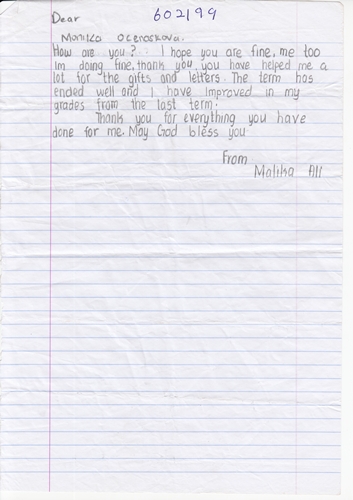 Dear 602/99
Monika Ocenaskova.
How are you? I hope you are fine, me too
Im doing fine, thank you, you have helped me a
lot for the gifts and letters. The term has
ended well and I have improved in my
grades from the last term.
Thank you for everything you have
done for me. May God bless you
From
Malika All